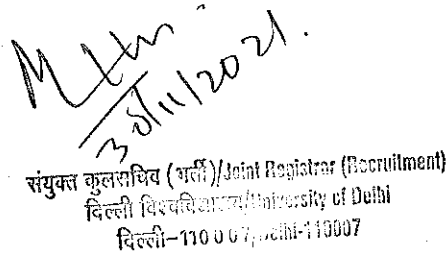 30/11/2021.
संयुक्त कुलसचिव (भर्ती)/Joint Registrar (Recruitment)
दिल्ली विश्वविद्यालय/University of Delhi
दिल्ली-110007/Delhi-110007